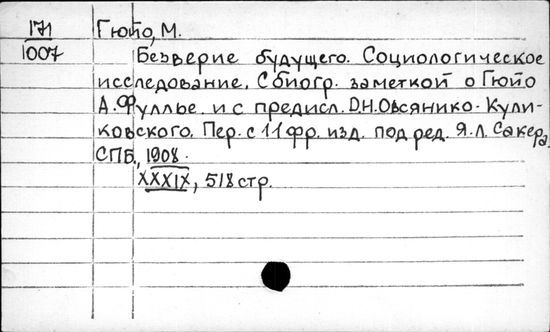 171
1007
Гюйо, М.
Безверие будущего. Социологическое
исследование. С биогр. заметкой о Гюйо
А. Фуллье. и с предисл. Д.Н. Овсянико-Кули-
ковского. Пер. с 11 фр. изд. под ред. Я.Л. Сакера,
СПБ, 1908.
XXXIX, 518 стр.